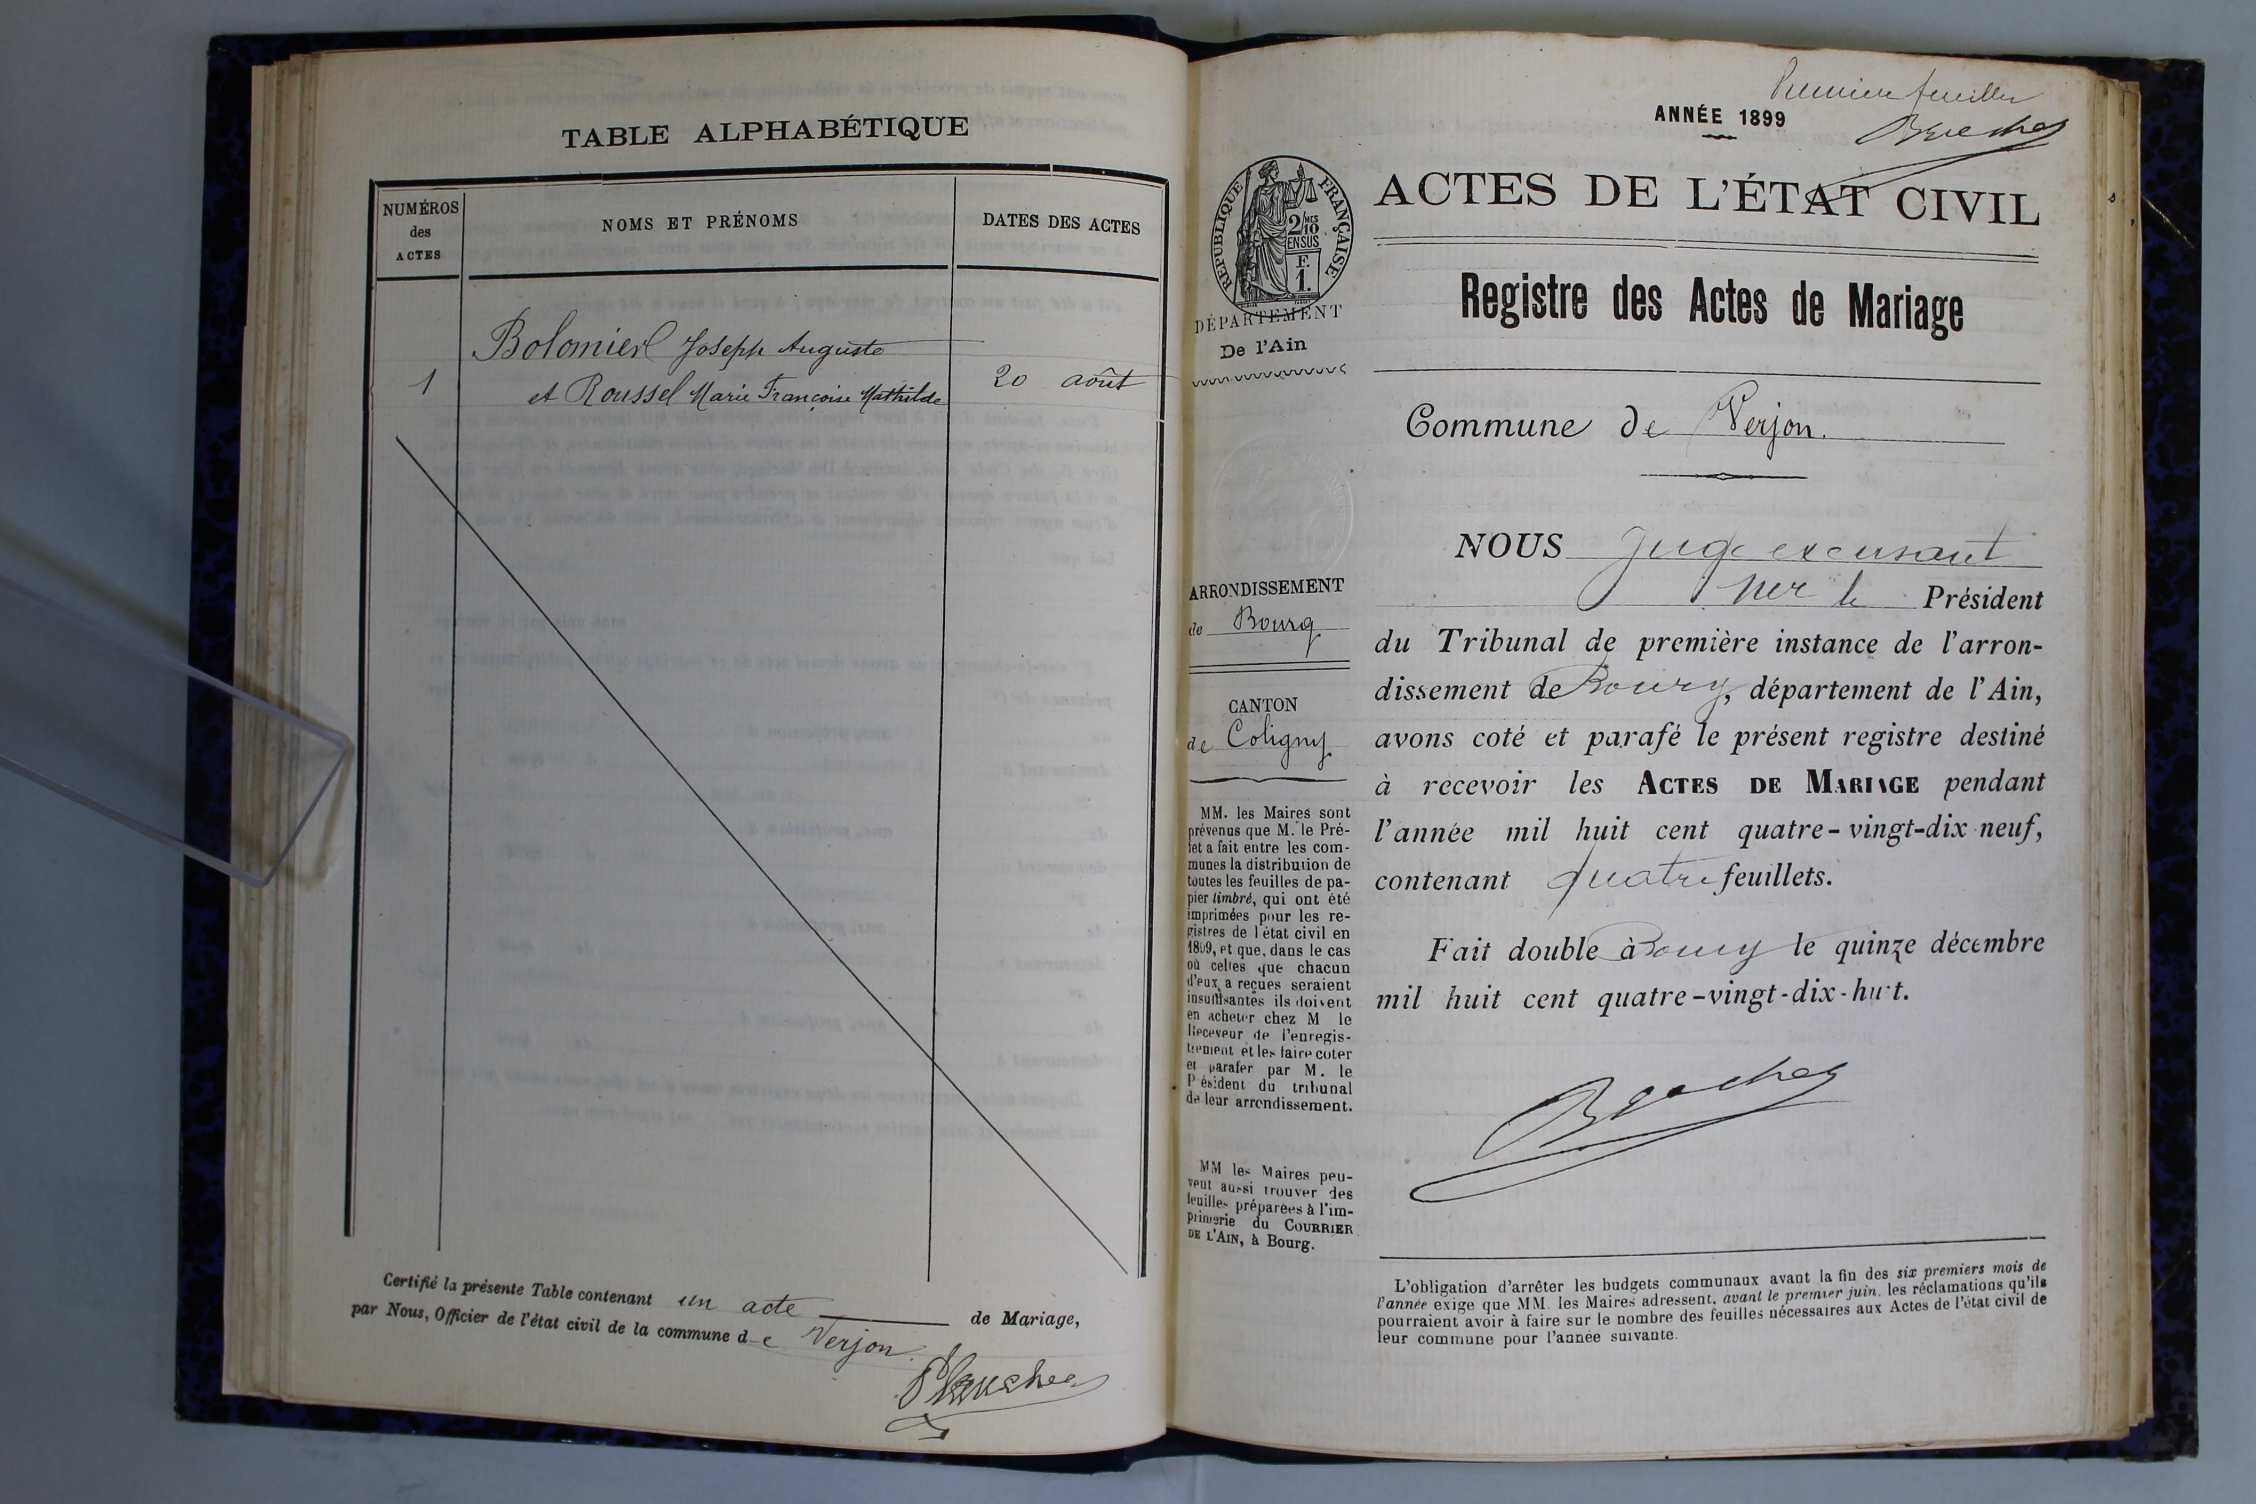 TABLE ALPHABÉTIQUE
NUMÉROS
des
ACTES
NOMS ET PRÉNOMS
DATES DES ACTES
Bolomier Joseph Auguste
1 et Roussel Marie Françoise Mathilde 20 août
Certifié la présente Table contenant un acte de Mariage,
par Nous, Officier de l'état civil de la commune de Verjon.
ANNÉE 1899
RÉPUBLIQUE FRANÇAISE
2/10 MES
EN SUS
F.
1.
DÉPARTEMENT
De l'Ain
ARRONDISSEMENT
de Bourg
CANTON
de Coligny
MM. les Maires sont
prévenus que M. le Pré-
fet a fait entre les com-
munes la distribution de
toutes les feuilles de pa-
pier timbré, qui ont été
imprimées pour les re-
gistres de l'état civil en
1899, et que, dans le cas
où celles que chacun
d'eux a reçues seraient
insuffisantes ils doivent
en acheter chez M le
Receveur de l'enregis-
trement et les faire coter
et parafer par M. le
Président du tribunal
de leur arrondissement.
MM les Maires peu-
vent aussi trouver des
feuilles préparées à l'im-
primerie du COURRIER
DE L'AIN, à Bourg.
ACTES DE L'ÉTAT CIVIL
Registre des Actes de Mariage
Commune de Verjon.
NOUS Juge
le Président
du Tribunal de première instance de l'arron-
dissement de Bourg, département de l'Ain,
avons coté et parafé le présent registre destiné
à recevoir les ACTES DE MARIAGE pendant
l'année mil huit cent quatre-vingt-dix neuf,
contenant quatre feuillets.
Fait double à Bourg le quinze décembre
mil huit cent quatre-vingt-dix-huit.
L'obligation d'arrêter les budgets communaux avant la fin des six premiers mois de
l'année exige que MM. les Maires adressent, avant le premier juin, les réclamations qu'ils
pourraient avoir à faire sur le nombre des feuilles nécessaires aux Actes de l'état civil de
leur commune pour l'année suivante.